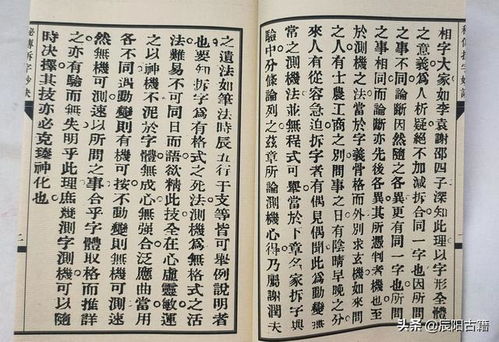 相字大家如李袁謝邵四子深知此理以字形全體
之意義爲人析疑絕不加減拆合同一字也因所問
之事不同論斷因然隨之各異更有同一字也所問
之事相同而論斷亦先後各異其所憑判者機也至
於測機之法當於字義骨格而外別求玄機如來問
之人有士農工商之別問事之日有陰晴早晚之分
來人有從容急迫拆字者有偶見偶聞此爲動變無
常之測機法並無程式可舉當於下章名家拆字與
驗中分條論列之茲章所論測機心得乃屬謝潤夫
之遺法如筆法時辰五行干支等皆可舉例說明者
也要知拆字爲有格式之死法測機爲無格式之活
法難易不可同日而語欲精此技全在心虛靈敏運
之以神機不泥於字體無成心無強合泛應曲當用
各不同遇動變則有機可按不動變則無機可測
然無機可測速以所問之事合乎字體取格而推詳
之亦有驗而無失明乎此理庶幾測字測機可以隨
時決擇其技亦必克臻神化也
秘傳拆字妙訣
二
头条 @辰阳古籍